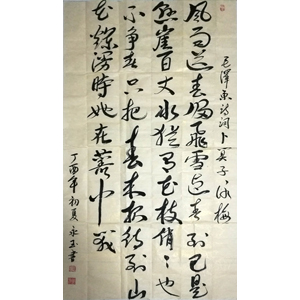 毛澤東詩词卜算子咏梅
风雨送春归飛雪迎春到已是
悬崖百丈冰犹有花枝俏〻也
不争春只把春来报待到山
花爛漫時她在叢中笑
丁酉年初夏永玉書